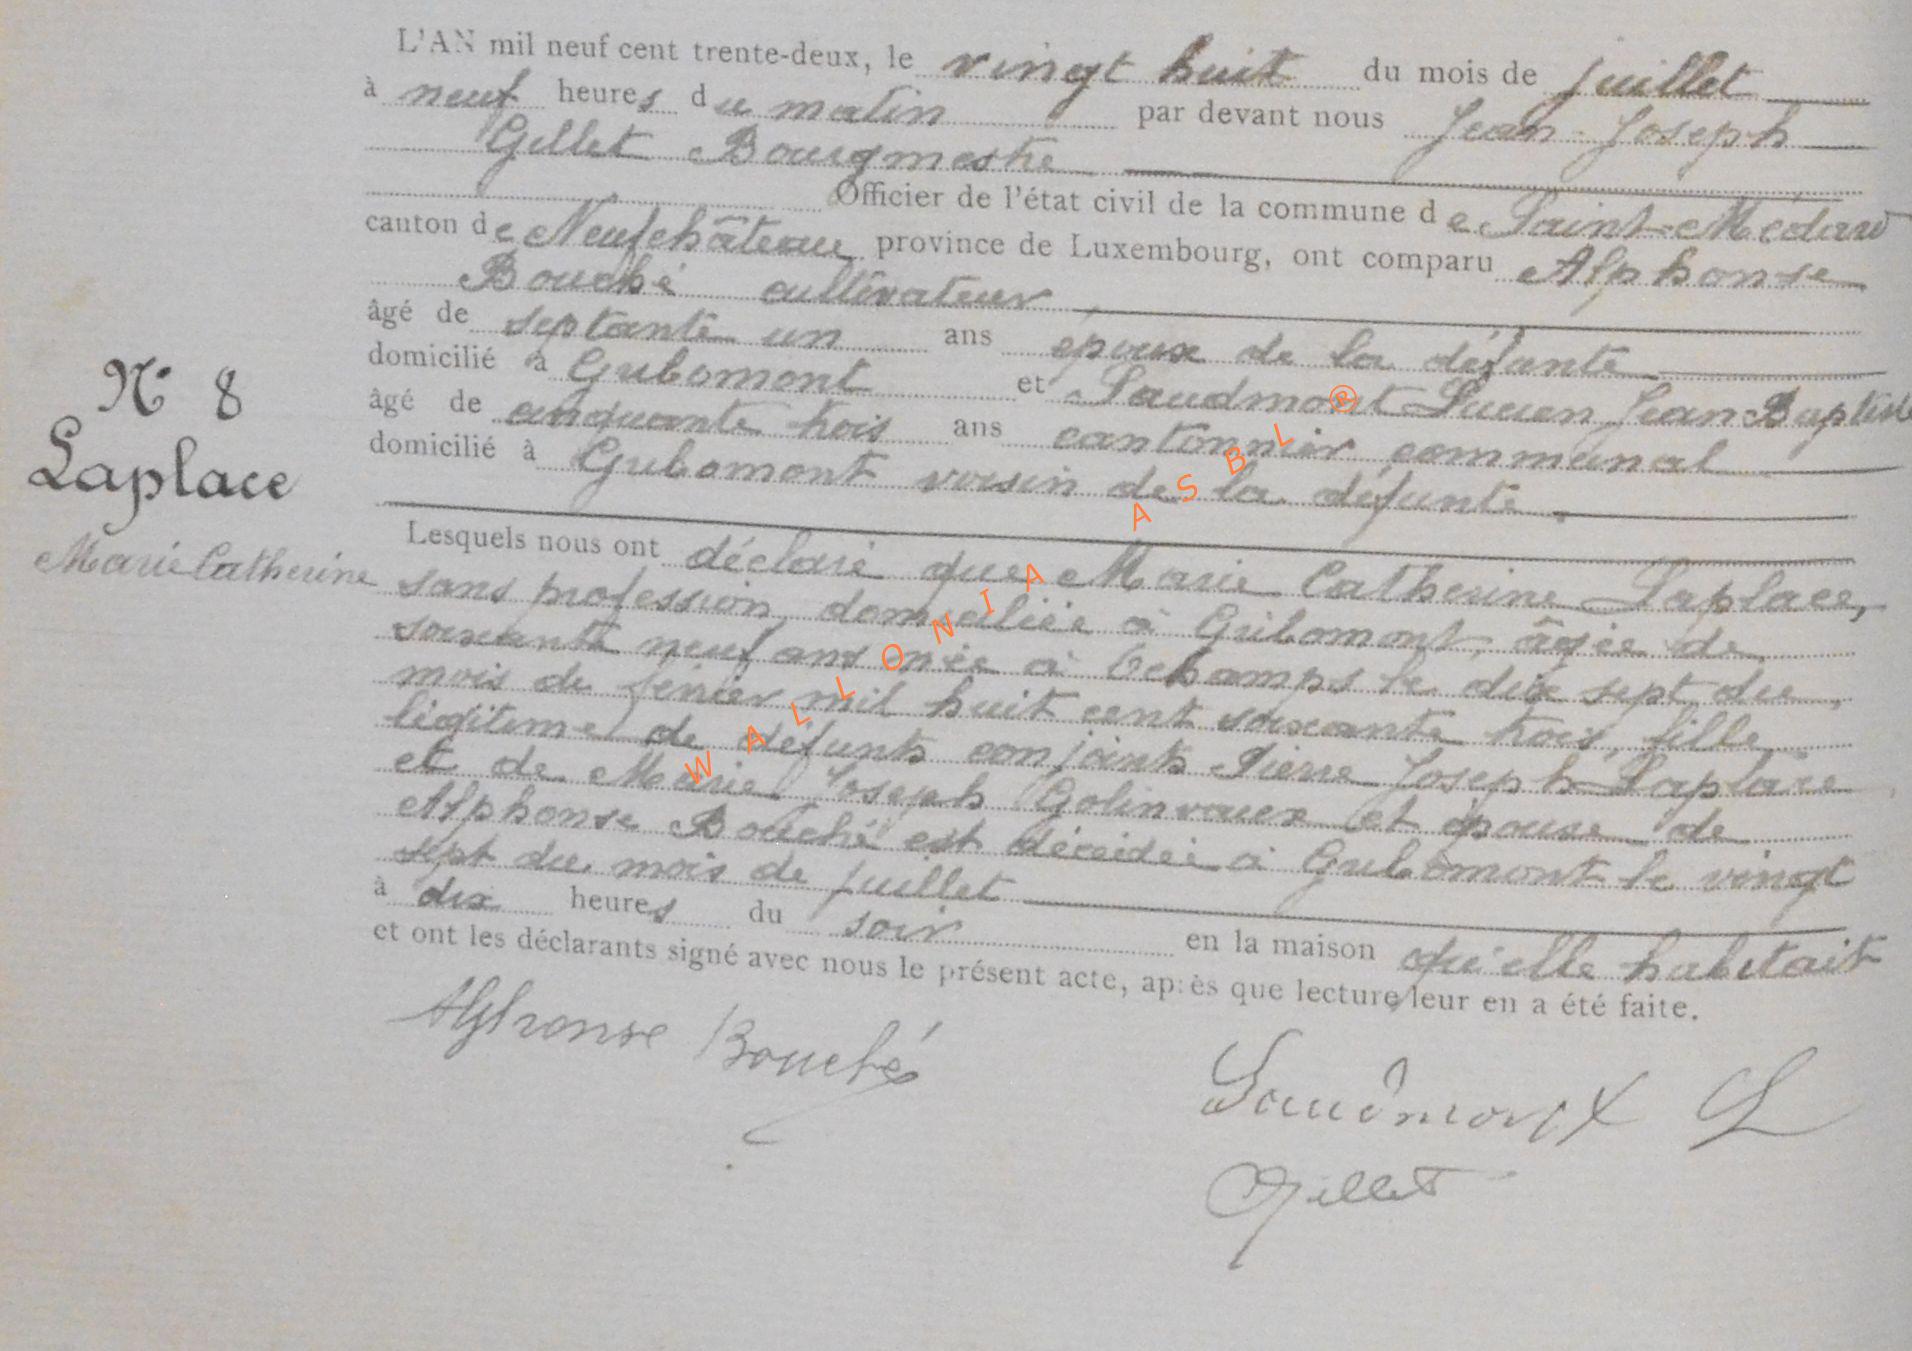 L'AN mil neuf cent trente-deux, le vingt huit du mois de juillet
à neuf heures du matin par devant nous Jean-Joseph
Gillet Bourgmestre
Officier de l'état civil de la commune de Saint-Médard
canton de Neufchâteau province de Luxembourg, ont comparu Alphonse
Bouché cultivateur
âgé de septante un ans époux de la défunte
domicilié à Gribomont et Laudmont Lucien Jean Baptiste
âgé de cinquante trois ans cantonnier communal
domicilié à Gribomont voisin de la défunte.
N° 8
Laplace
Marie Catherine
Lesquels nous ont déclaré que Marie Catherine Laplace,
sans profession, domiciliée à Gribomont, âgée de
soixante neuf ans née à le dix sept du
mois de février mil huit cent soixante trois, fille
légitime de défunts conjoints Pierre Joseph Laplace
et de Marie Joseph Golinvaux et épouse de
Alphonse Bouché est décédée à Gribomont le vingt
sept du mois de juillet
à dix heures du soir en la maison qu'elle habitait
et ont les déclarants signé avec nous le présent acte, après que lecture leur en a été faite.
Alphonse Bouché
Laudmont L
Gillet
WALLONIA ASBL ®